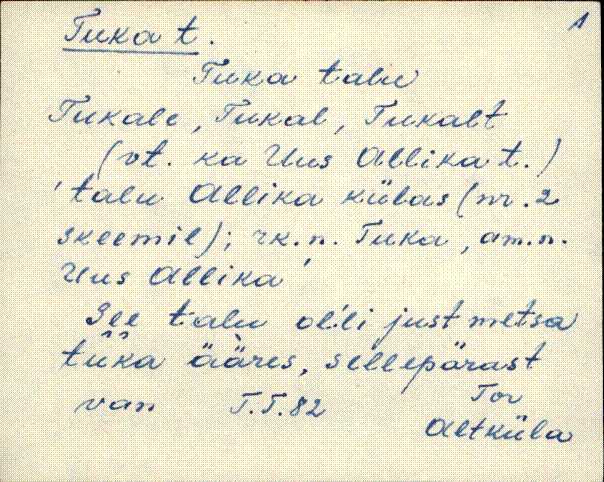 Tuka t. 1
Tuka talu
Tukale, Tukal, Tukalt
(vt. ka Uus Allika t.)
'talu Allika külas (nr. 2
skeemil); rk.n. Tuka, am.n.
Uus Allika'
See talu ol'li just metsa
tuka ääres, sellepärast
van T.T.82 Tor
Altküla